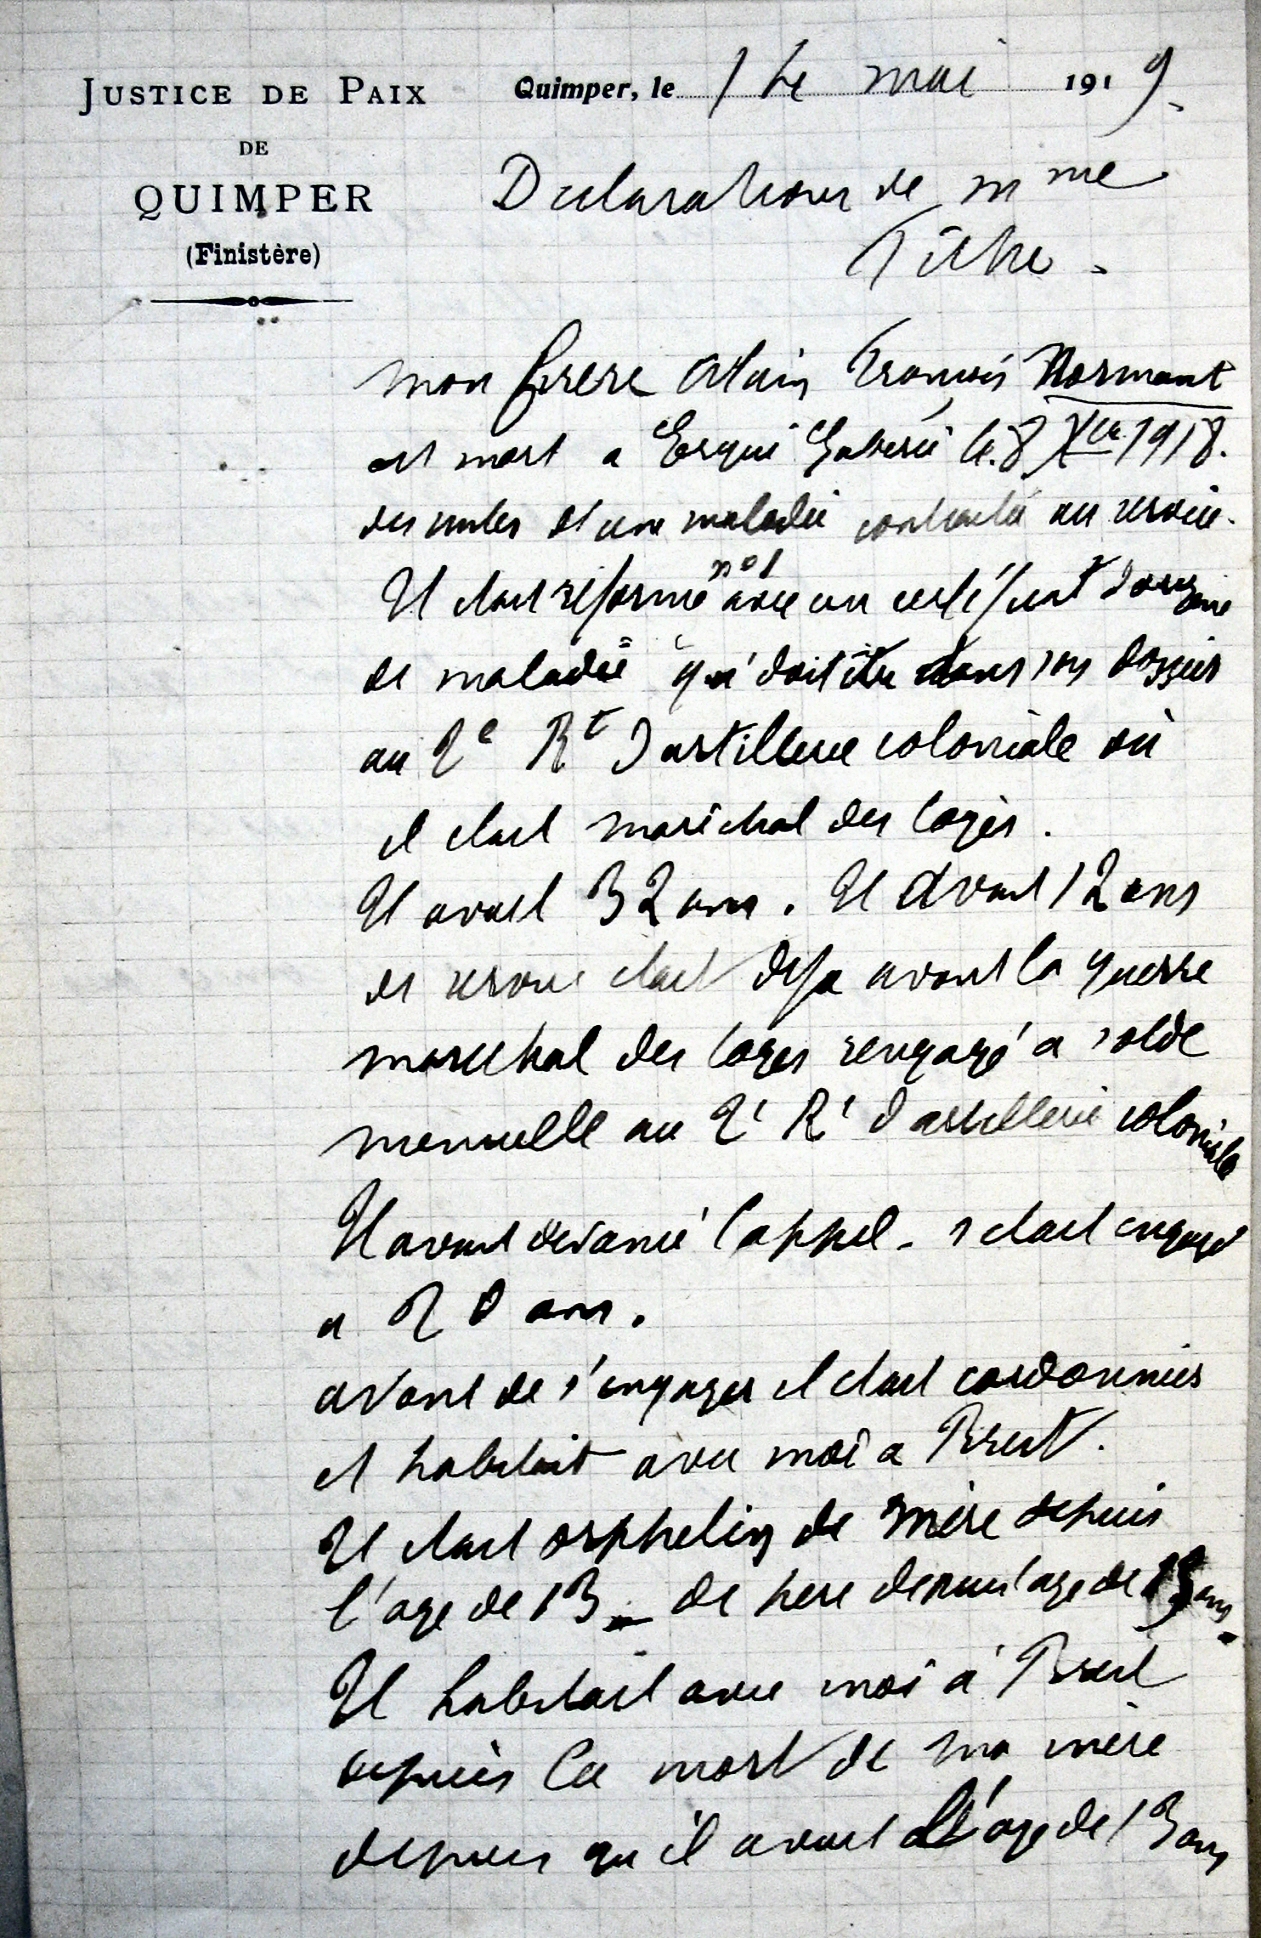 JUSTICE DE PAIX
DE
QUIMPER
(Finistère)
Quimper, le 14 mai 1919.
Declaration de Mme
mon frere Alain François Normant
est mort a Ergué Gaberic le 8 Xbre 1918.
des suites d'une maladie contractée au service.
Il etait réformé n°1 avec un certificat d'origine
de maladie qui doit être dans son dossier
au 2e Rt d'artillerie coloniale où
il etait maréchal des logis.
Il avait 32 ans. Il avait 12 ans
de service etait deja avant la guerre
marechal des logis rengagé a solde
mensuelle au 2e Rt d'artillerie coloniale
Il avait devancé l'appel. s'etait engagé
a 20 ans.
avant de s'engager il etait cordonnier
et habitait avec moi a Brest.
Il etait orphelin de mère depuis
l'age de 13 - de pere depuis l'age de ans.
Il habitait avec moi à Brest
depuis la mort de ma mère
depuis qu'il avait l'age de 13 ans